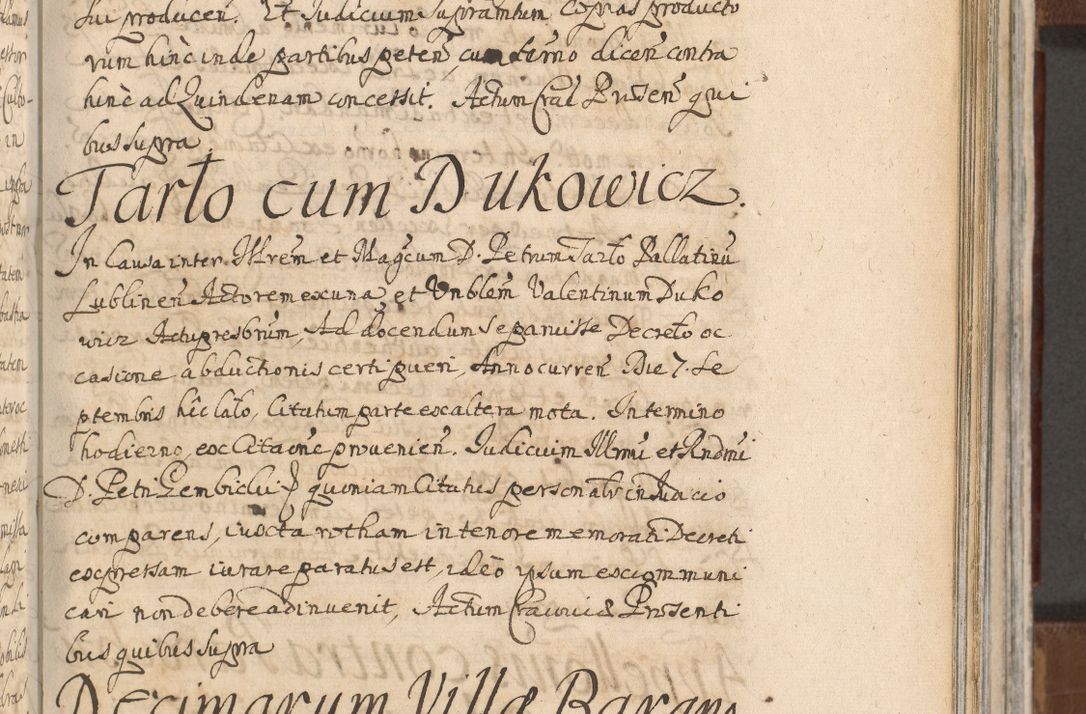 sui producen̄. Et Judicium supramtum copias producto
rum hinc inde partibus peten̄, cum termo dicen̄ contra
hinc ad Quindenam concessit. Actum Crac Presen̄ qui
bus supra
Tarło cum Dukowicz.
In Causa inter Illrem et Magcum D. Petrum Tarło Pallatinū
Lublinen̄ Actorem ex una, et Vnblem Valentinum Duko
wicz Actu presbrum, Ad docendum se paruisse Decreto oc
casione abductionis certi pueri, Anno curren̄ Die 7. Se
ptembris hic lato, Citatum parte ex altera mota. In termino
hodierno, ex Citaone prouenien̄. Judicium Illrmi et Rndmi
D. Petri Gembicki quoniam Citatus personalr in Juacio
comparens, iuxta rotham in tenore memorati Decreti
expressam iurare paratus est, ideo ipsum excommuni
cari non debere adinuenit, Actum Cracouiæ Presenti
bus quibus supra
Decimarum Villæ Baran